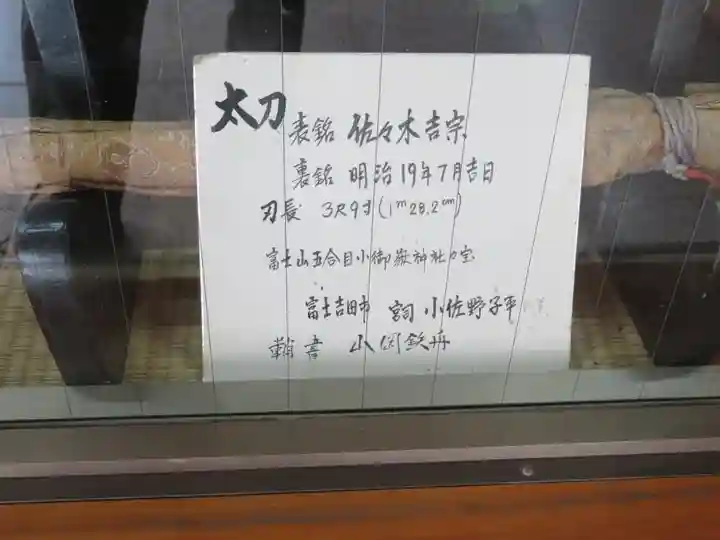 太刀
表銘 佐々木吉宗
裏銘 明治19年7月吉日
刃長 3尺9寸(1m28.2cm)
富士山五合目小御嶽神社の宝
富士吉田市 宮司 小佐野子平
鞘書 山岡鉄舟